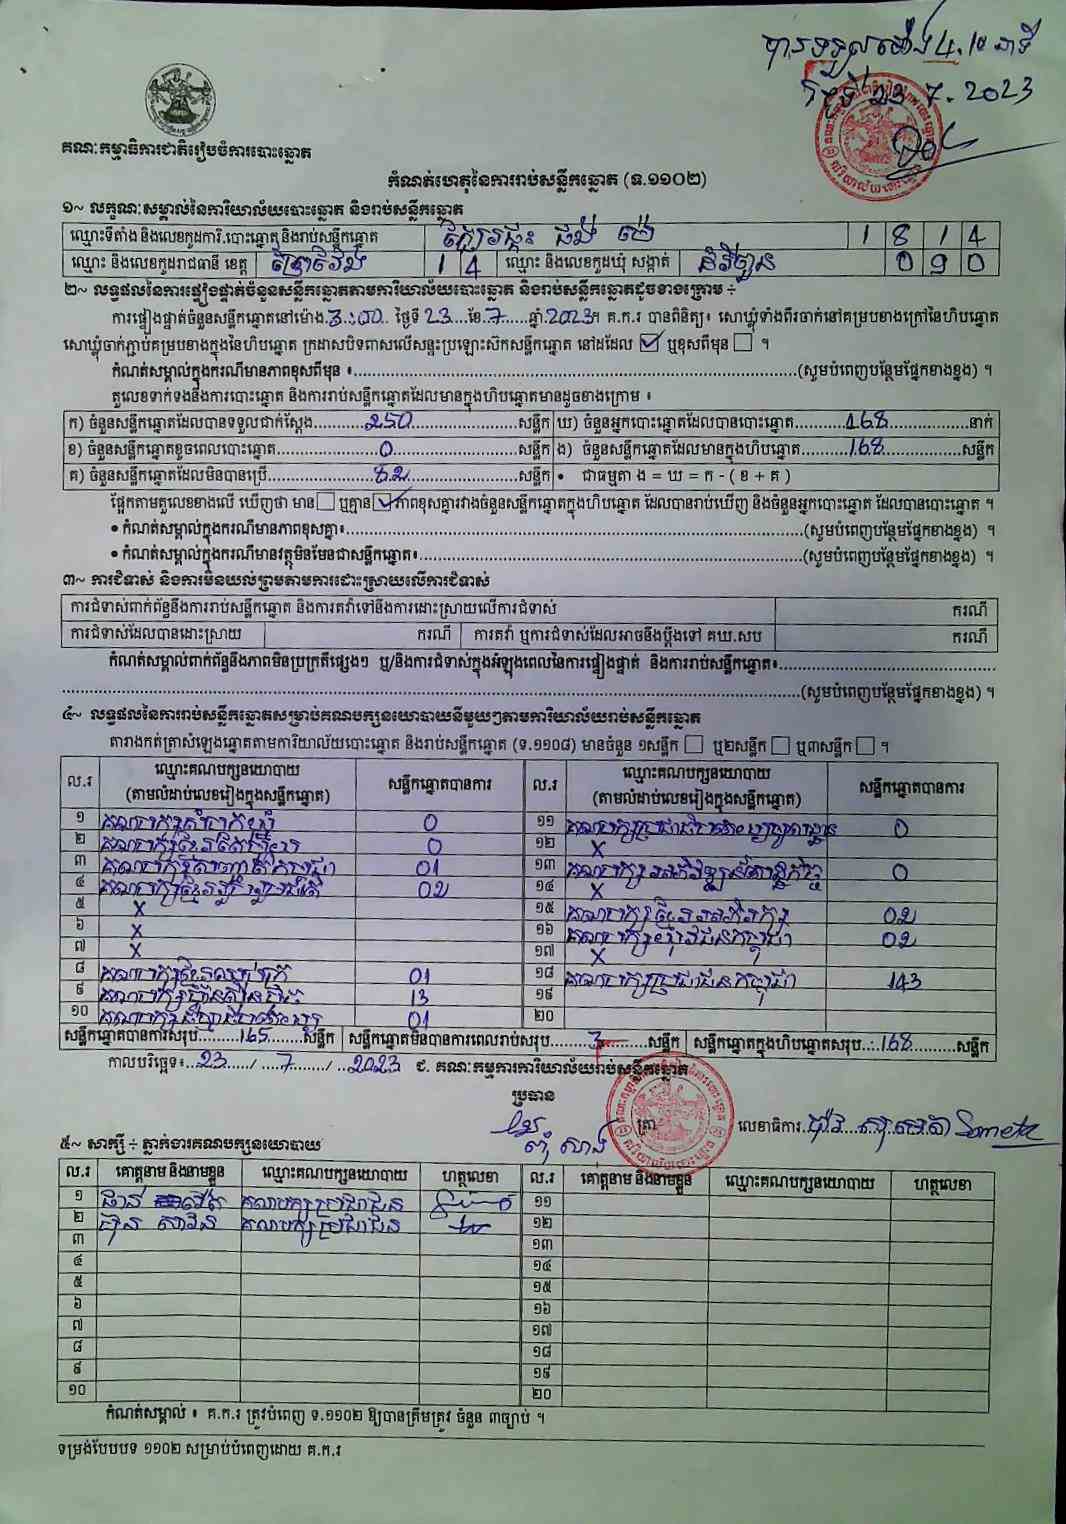 បានទទួលម៉ោង 4.
23. 7. 2023
គណៈកម្មាធិការជាតិរៀបចំការបោះឆ្នោត
កំណត់ហេតុនៃការរាប់សន្លឹកឆ្នោត (ទ.១១០២)
១~ លក្ខណៈសម្គាល់នៃការិយាល័យបោះឆ្នោត និងរាប់សន្លឹកឆ្នោត
ឈ្មោះទីតាំង និងលេខកូដការិ.បោះឆ្នោត និងរាប់សន្លឹកឆ្នោត 1 8 1 4
ឈ្មោះ និងលេខកូដរាជធានី ខេត្ត ព្រៃវែង 1 4 ឈ្មោះ និងលេខកូដឃុំ សង្កាត់ 0 9 0
២~ លទ្ធផលនៃការផ្ទៀងផ្ទាត់ចំនួនសន្លឹកឆ្នោតតាមការិយាល័យបោះឆ្នោត និងរាប់សន្លឹកឆ្នោតដូចខាងក្រោម ÷
ការផ្ទៀងផ្ទាត់ចំនួនសន្លឹកឆ្នោតនៅម៉ោង 3:00 ថ្ងៃទី 23 ខែ 7 ឆ្នាំ 2023។ គ.ក.រ បានពិនិត្យ៖ សោឃ្លុំទាំងពីរចាក់នៅគម្របខាងក្រៅនៃហិបឆ្នោត
សោឃ្លុំចាក់ភ្ជាប់គម្របខាងក្នុងនៃហិបឆ្នោត ក្រដាសបិទពាសលើសន្ទះប្រឡោះស៊កសន្លឹកឆ្នោត នៅដដែល ☑ ឬខុសពីមុន ☐ ។
កំណត់សម្គាល់ក្នុងករណីមានភាពខុសពីមុន ៖ (សូមបំពេញបន្ថែមផ្នែកខាងខ្នង) ។
តួលេខទាក់ទងនឹងការបោះឆ្នោត និងការរាប់សន្លឹកឆ្នោតដែលមានក្នុងហិបឆ្នោតមានដូចខាងក្រោម ៖
ក) ចំនួនសន្លឹកឆ្នោតដែលបានទទួលជាក់ស្តែង 250 សន្លឹក ឃ) ចំនួនអ្នកបោះឆ្នោតដែលបានបោះឆ្នោត 168 នាក់
ខ) ចំនួនសន្លឹកឆ្នោតខូចពេលបោះឆ្នោត 0 សន្លឹក ង) ចំនួនសន្លឹកឆ្នោតដែលមានក្នុងហិបឆ្នោត 168 សន្លឹក
គ) ចំនួនសន្លឹកឆ្នោតដែលមិនបានប្រើ 82 សន្លឹក • ជាធម្មតា ង = ឃ = ក - ( ខ + គ )
ផ្អែកតាមតួលេខខាងលើ ឃើញថា មាន ☐ ឬគ្មាន ☑ ភាពខុសគ្នារវាងចំនួនសន្លឹកឆ្នោតក្នុងហិបឆ្នោត ដែលបានរាប់ឃើញ និងចំនួនអ្នកបោះឆ្នោត ដែលបានបោះឆ្នោត ។
• កំណត់សម្គាល់ក្នុងករណីមានភាពខុសគ្នា៖ (សូមបំពេញបន្ថែមផ្នែកខាងខ្នង) ។
• កំណត់សម្គាល់ក្នុងករណីមានវត្ថុមិនមែនជាសន្លឹកឆ្នោត៖ (សូមបំពេញបន្ថែមផ្នែកខាងខ្នង) ។
៣~ ការជំទាស់ និងការមិនយល់ព្រមតាមការដោះស្រាយលើការជំទាស់
ការជំទាស់ពាក់ព័ន្ធនឹងការរាប់សន្លឹកឆ្នោត និងការតវ៉ាទៅនឹងការដោះស្រាយលើការជំទាស់ ករណី
ការជំទាស់ដែលបានដោះស្រាយ ករណី ការតវ៉ា ឬការជំទាស់ដែលអាចនឹងប្តឹងទៅ គឃ.សប ករណី
កំណត់សម្គាល់ពាក់ព័ន្ធនឹងភាពមិនប្រក្រតីផ្សេងៗ ឬ/និងការជំទាស់ក្នុងអំឡុងពេលនៃការផ្ទៀងផ្ទាត់ និងការរាប់សន្លឹកឆ្នោត៖
(សូមបំពេញបន្ថែមផ្នែកខាងខ្នង) ។
៤~ លទ្ធផលនៃការរាប់សន្លឹកឆ្នោតសម្រាប់គណបក្សនយោបាយនីមួយៗតាមការិយាល័យរាប់សន្លឹកឆ្នោត
តារាងកត់ត្រាសំឡេងឆ្នោតតាមការិយាល័យបោះឆ្នោត និងរាប់សន្លឹកឆ្នោត (ទ.១១០៨) មានចំនួន ១សន្លឹក ☐ ឬ២សន្លឹក ☐ ឬ៣សន្លឹក ☐ ។
ល.រ ឈ្មោះគណបក្សនយោបាយ (តាមលំដាប់លេខរៀងក្នុងសន្លឹកឆ្នោត) សន្លឹកឆ្នោតបានការ ល.រ ឈ្មោះគណបក្សនយោបាយ (តាមលំដាប់លេខរៀងក្នុងសន្លឹកឆ្នោត) សន្លឹកឆ្នោតបានការ
១ គណបក្ស 0 ១១ គណបក្ស 0
២ គណបក្ស 0 ១២ X
៣ គណបក្ស កម្ពុជា 01 ១៣ គណបក្ស 0
៤ គណបក្សខ្មែរ 02 ១៤ X
៥ X ១៥ គណបក្សខ្មែរអភិរក្ស 02
៦ X ១៦ គណបក្សយុវជនកម្ពុជា 02
៧ X ១៧ X
៨ គណបក្សខ្មែរ 01 ១៨ គណបក្សប្រជាជនកម្ពុជា 143
៩ គណបក្សហ៊្វុនស៊ិនប៉ិច 13 ១៩
១០ គណបក្ស 01 ២០
សន្លឹកឆ្នោតបានការសរុប 165 សន្លឹក សន្លឹកឆ្នោតមិនបានការពេលរាប់សរុប 3 សន្លឹក សន្លឹកឆ្នោតក្នុងហិបឆ្នោតសរុប 168 សន្លឹក
កាលបរិច្ឆេទ៖ 23 / 7 / 2023 ជ. គណៈកម្មការការិយាល័យរាប់សន្លឹកឆ្នោត
ប្រធាន
ត្រា លេខាធិការ Someta
៥~ សាក្សី ÷ ភ្នាក់ងារគណបក្សនយោបាយ
ល.រ គោត្តនាម និងនាមខ្លួន ឈ្មោះគណបក្សនយោបាយ ហត្ថលេខា ល.រ គោត្តនាម និងនាមខ្លួន ឈ្មោះគណបក្សនយោបាយ ហត្ថលេខា
១ គណបក្សប្រជាជន ១១
២ គណបក្សប្រជាជន ១២
៣ ១៣
៤ ១៤
៥ ១៥
៦ ១៦
៧ ១៧
៨ ១៨
៩ ១៩
១០ ២០
កំណត់សម្គាល់ ៖ គ.ក.រ ត្រូវបំពេញ ទ.១១០២ ឱ្យបានត្រឹមត្រូវ ចំនួន ៣ច្បាប់ ។
ទម្រង់បែបបទ ១១០២ សម្រាប់បំពេញដោយ គ.ក.រ